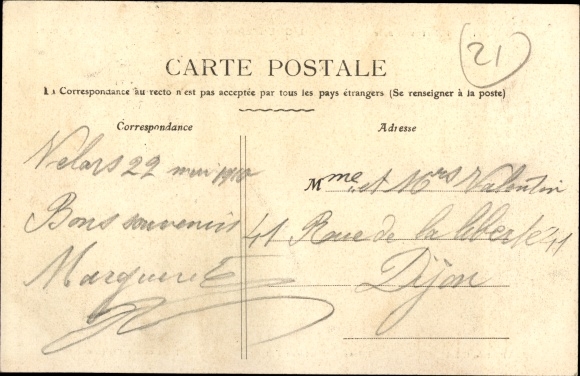 21
CARTE POSTALE
La Correspondance au recto n'est pas acceptée par tous les pays étrangers (Se renseigner à la poste)
Correspondance
Velars 22 mai 1910
Bons souvenirs
Marguerite
Adresse
Mme et Mrs Valentin
41 Rue de la liberté 41
Dijon